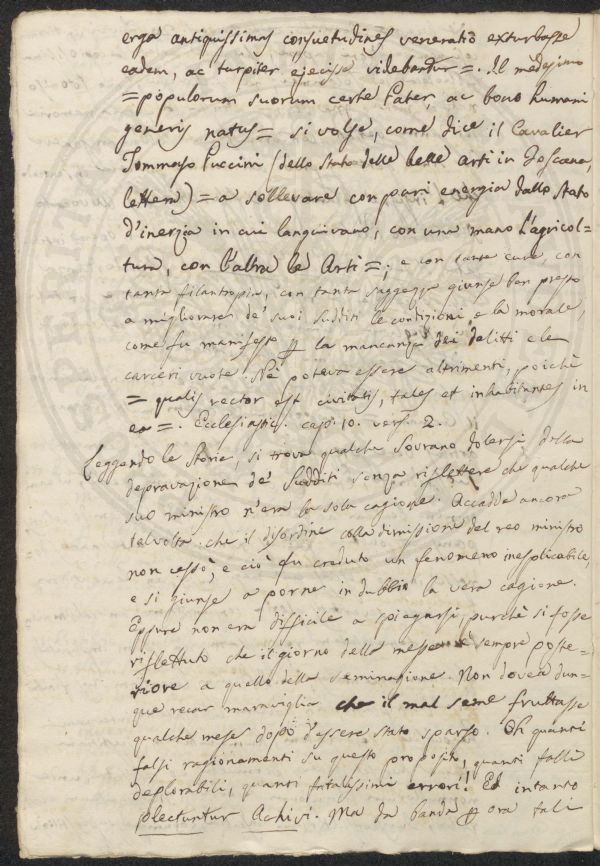 erga antiquissimas consuetudines veneratiō exturbasse
eadem, ac turpiter ejecisse videbantur =. Il medesimo
= populorum suorum certè Pater, ac bono humani
generis natus = si volse, come dice il Cavalier
Tommaso Puccini (dello stato delle belle arti in Toscana,
lettera) = a sollevare con pari energia dallo stato
d'inerzia in cui languivano, con una mano l'agricol=
tura, con l'altra le Arti =; e con tante cure, con
tanta filantropia, con tanta saggezza giunse ben presto
a migliorare de' suoi sudditi le condizioni e la morale,
come fu manifesto per la mancanza dei delitti e le
carceri vuote. Nè poteva essere altrimenti, poichè
= qualis rector est civitatis, tales et inhabitantes in
ea =. Ecclesiastic. cap. 10. vers. 2.
Leggendo le Storie, si trova qualche Sovrano dolersi della
depravazione de' Sudditi senza riflettere che qualche
suo ministro n'era la sola cagione. Accadde ancora
talvolta che il disordine colla dimissione del reo ministro
non cessò, e ciò fu creduto un fenomeno inesplicabile,
e si giunse a porne in dubbio la vera cagione.
Eppure non era difficile a spiegarsi, purchè si fosse
riflettuto che il giorno della messe è sempre poste=
riore a quello della seminagione. Non dovea dun=
que recar maraviglia che il mal seme fruttasse
qualche mese dopo d'essere stato sparso. Oh quanti
falsi ragionamenti su questo proposito, quanti falli
deplorabili, quanti fatalissimi errori! Ed intanto
plectuntur Achivi. Ma da banda per ora tali